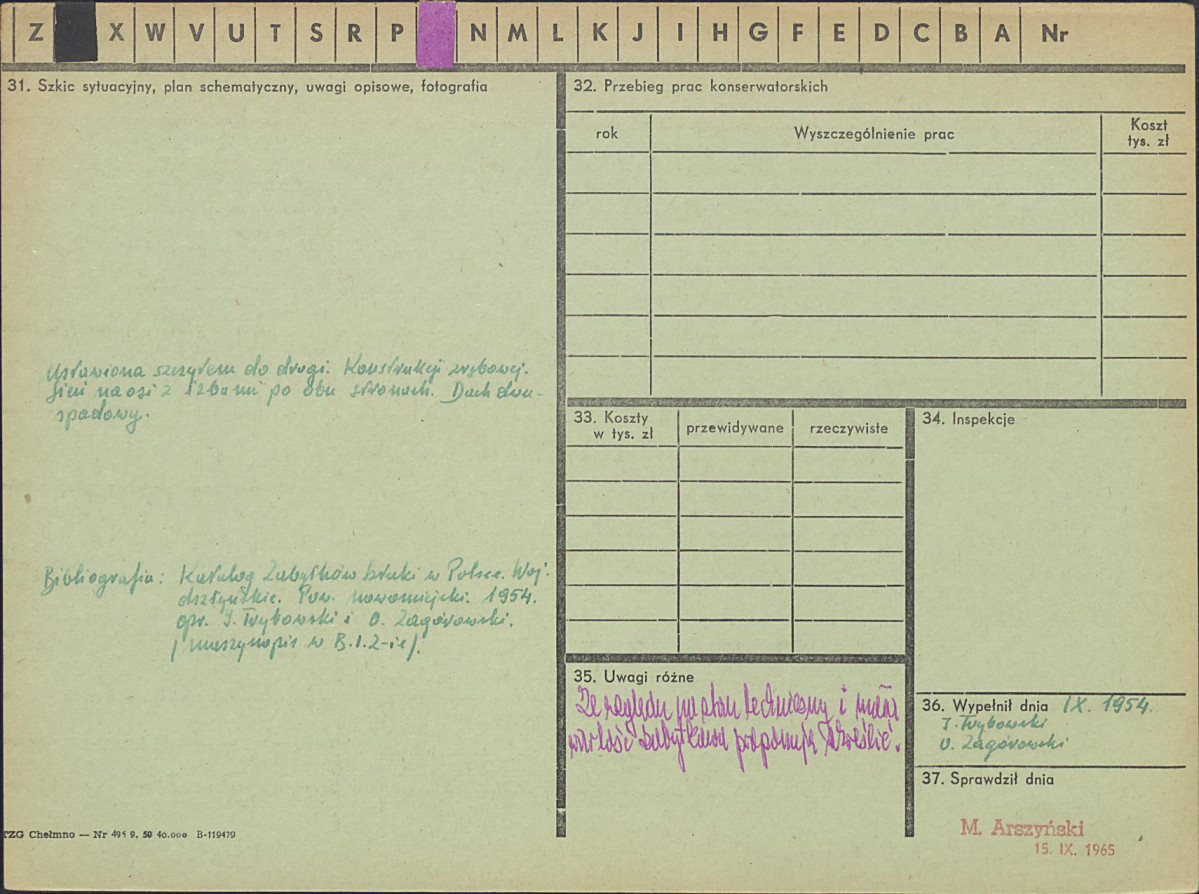 Z X W V U T S R P N M L K J I H G F E D C B A Nr
31. Szkic sytuacyjny, plan schematyczny, uwagi opisowe, fotografia
Ustawiona szczytem do drogi. Konstrukcji zrębowej.
Sień na osi z izbami po obu stronach. Dach dwu-
spadowy.
Bibliografia: Katalog Zabytków Sztuki w Polsce. Woj.
olsztyńskie. Pow. nowomiejski. 1954.
opr. J. Frybowski i O. Zagórowski.
/maszynopis w B.I.Z-ie/.
TZG Chełmno — Nr 495 9. 50 40.000 B-119479
32. Przebieg prac konserwatorskich
rok Wyszczególnienie prac Koszt
tys. zł
33. Koszty
w tys. zł przewidywane rzeczywiste
34. Inspekcje
35. Uwagi różne
Ze względu na stan techniczny i małą
wartość zabytkową proponuję skreślić.
36. Wypełnił dnia IX. 1954.
J. Frybowski
O. Zagórowski
37. Sprawdził dnia
M. Arszyński
15. IX. 1965